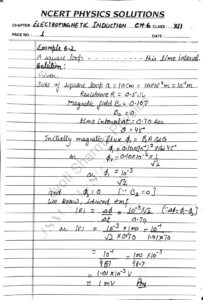 NCERT PHYSICS SOLUTIONS
CHAPTER ELECTROMAGNETIC INDUCTION CH 6 CLASS XII
PAGE NO. 1 DATE
Example 6.2
A square loop ------ this time interval.
Solution:
Given,
Side of square loop a = 10cm = 10×10⁻²m = 10⁻¹m
Resistance R = 0.5Ω
Magnetic field B₁ = 0.10T
B₂ = 0
time interval = 0.70 sec
θ = 45°
Initially magnetic flux ϕ₁ = BA cosθ
ϕ₁ = 0.10×(10⁻¹)² × cos 45°
or ϕ₁ = 0.10×10⁻² × 1/√2
or ϕ₁ = 10⁻³/√2
and ϕ₂ = 0 [∵ B₂ = 0]
We know, induced emf
|E| = Δϕ/Δt = 10⁻³/√2 / 0.70 [∵ Δϕ = ϕ₁ - ϕ₂]
or |E| = 10⁻³ × 100 / √2 × 70 = 10⁻¹ / 1.41×70
= 10⁻¹/98.7 = 100 × 10⁻³/98.7
= 1.01 × 10⁻³ V
≈ 1 mV Ans